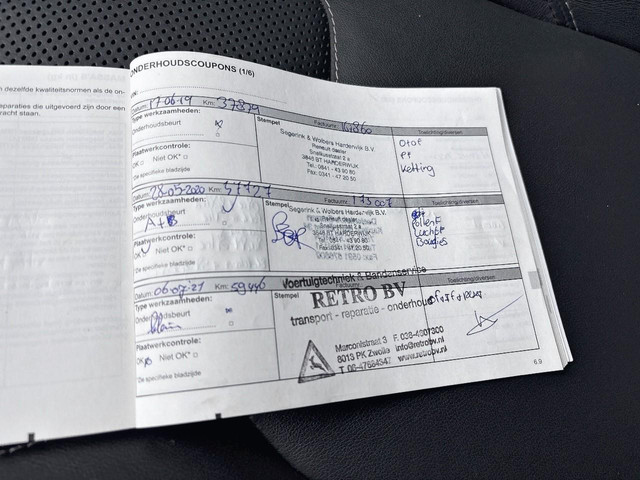 n dezelfde kwaliteitsnormen als de on-
eparaties die uitgevoerd zijn door een
racht staan.
ONDERHOUDSCOUPONS (1/6)
Datum: 17-06-19 Km: 37879
Type werkzaamheden:
Onderhoudsbeurt
Plaatwerkcontrole:
OK Niet OK*
De specifieke bladzijde
Stempel
Factuurnr.
Segerink & Wolbers Harderwijk B.V.
Renault dealer
Snelliusstraat 2 a
3846 BT HARDERWIJK
Tel.: 0341 - 43 90 80
Fax: 0341 - 47 20 50
Toelichting/diversen
Otof
Pf
Ketting
Datum: 28-05-2020 Km:
Type werkzaamheden:
Onderhoudsbeurt
A+B
Plaatwerkcontrole:
OK Niet OK*
De specifieke bladzijde
Stempel
Factuurnr. 173007
Segerink & Wolbers Harderwijk B.V.
Renault dealer
Snelliusstraat 2 a
3846 BT HARDERWIJK
Toelichting/diversen
Pollenf
Luchtf
Bougies
Datum: 06-07-21 Km: 59446
Type werkzaamheden:
Onderhoudsbeurt
Plaatwerkcontrole:
OK Niet OK*
De specifieke bladzijde
Stempel
Factuurnr.
Toelichting/diversen
Voertuigtechniek & Bandenservice
RETRO BV
transport - reparatie - onderhoud
Marconistraat 3 F. 038-4007300
8013 PK Zwolle info@retrobv.nl
T. 06-47684547 www.retrobv.nl
6.9